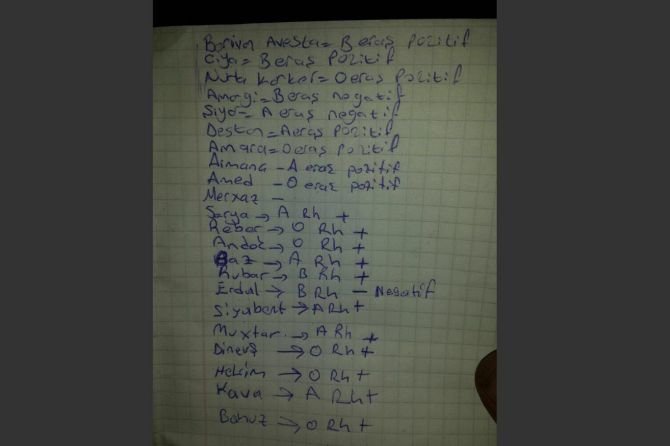 Berivan Avesta = B eraş pozitif
Ciya = B eraş pozitif
Nuta korker = O eraş pozitif
Amargi = B eraş negatif
Siyar = A eraş negatif
Destan = A eraş pozitif
Amara = O eraş pozitif
Armanc - A eraş pozitif
Amed - O eraş pozitif
Merxaz -
Serya → A Rh +
Reber → O Rh +
Andok → O Rh +
Baz → A Rh +
Rubar → B Rh +
Erdal → B Rh - Negatif
Siyabent → A Rh +
Muxtar → A Rh +
Dinerş → O Rh +
Hekim → O Rh +
Kawa → A Rh +
Bahoz → O Rh +